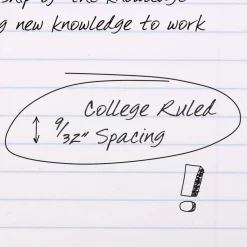 of the knowledge
new knowledge to work
College Ruled
9/32" Spacing